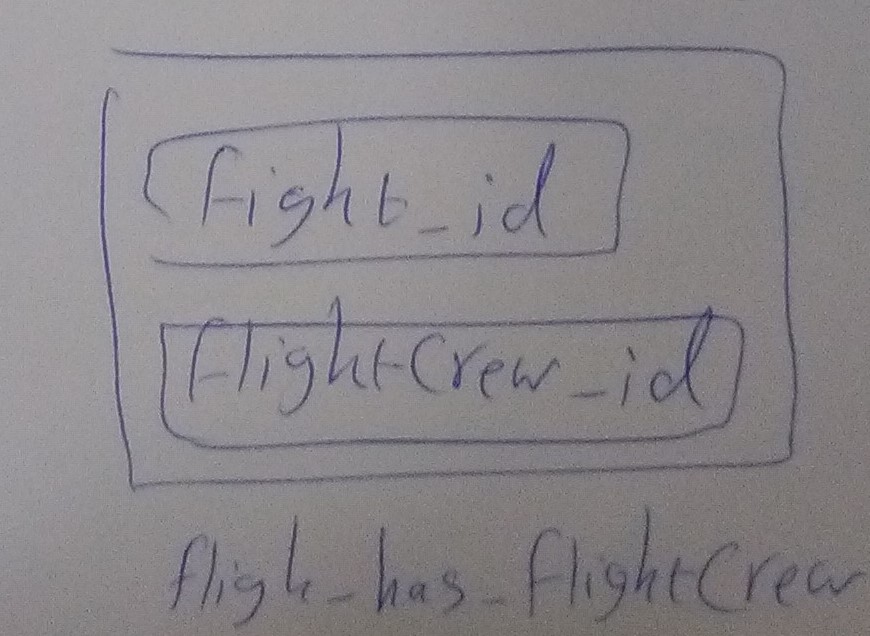 fight_id
flightCrew_id
fligh_has_flightCrew